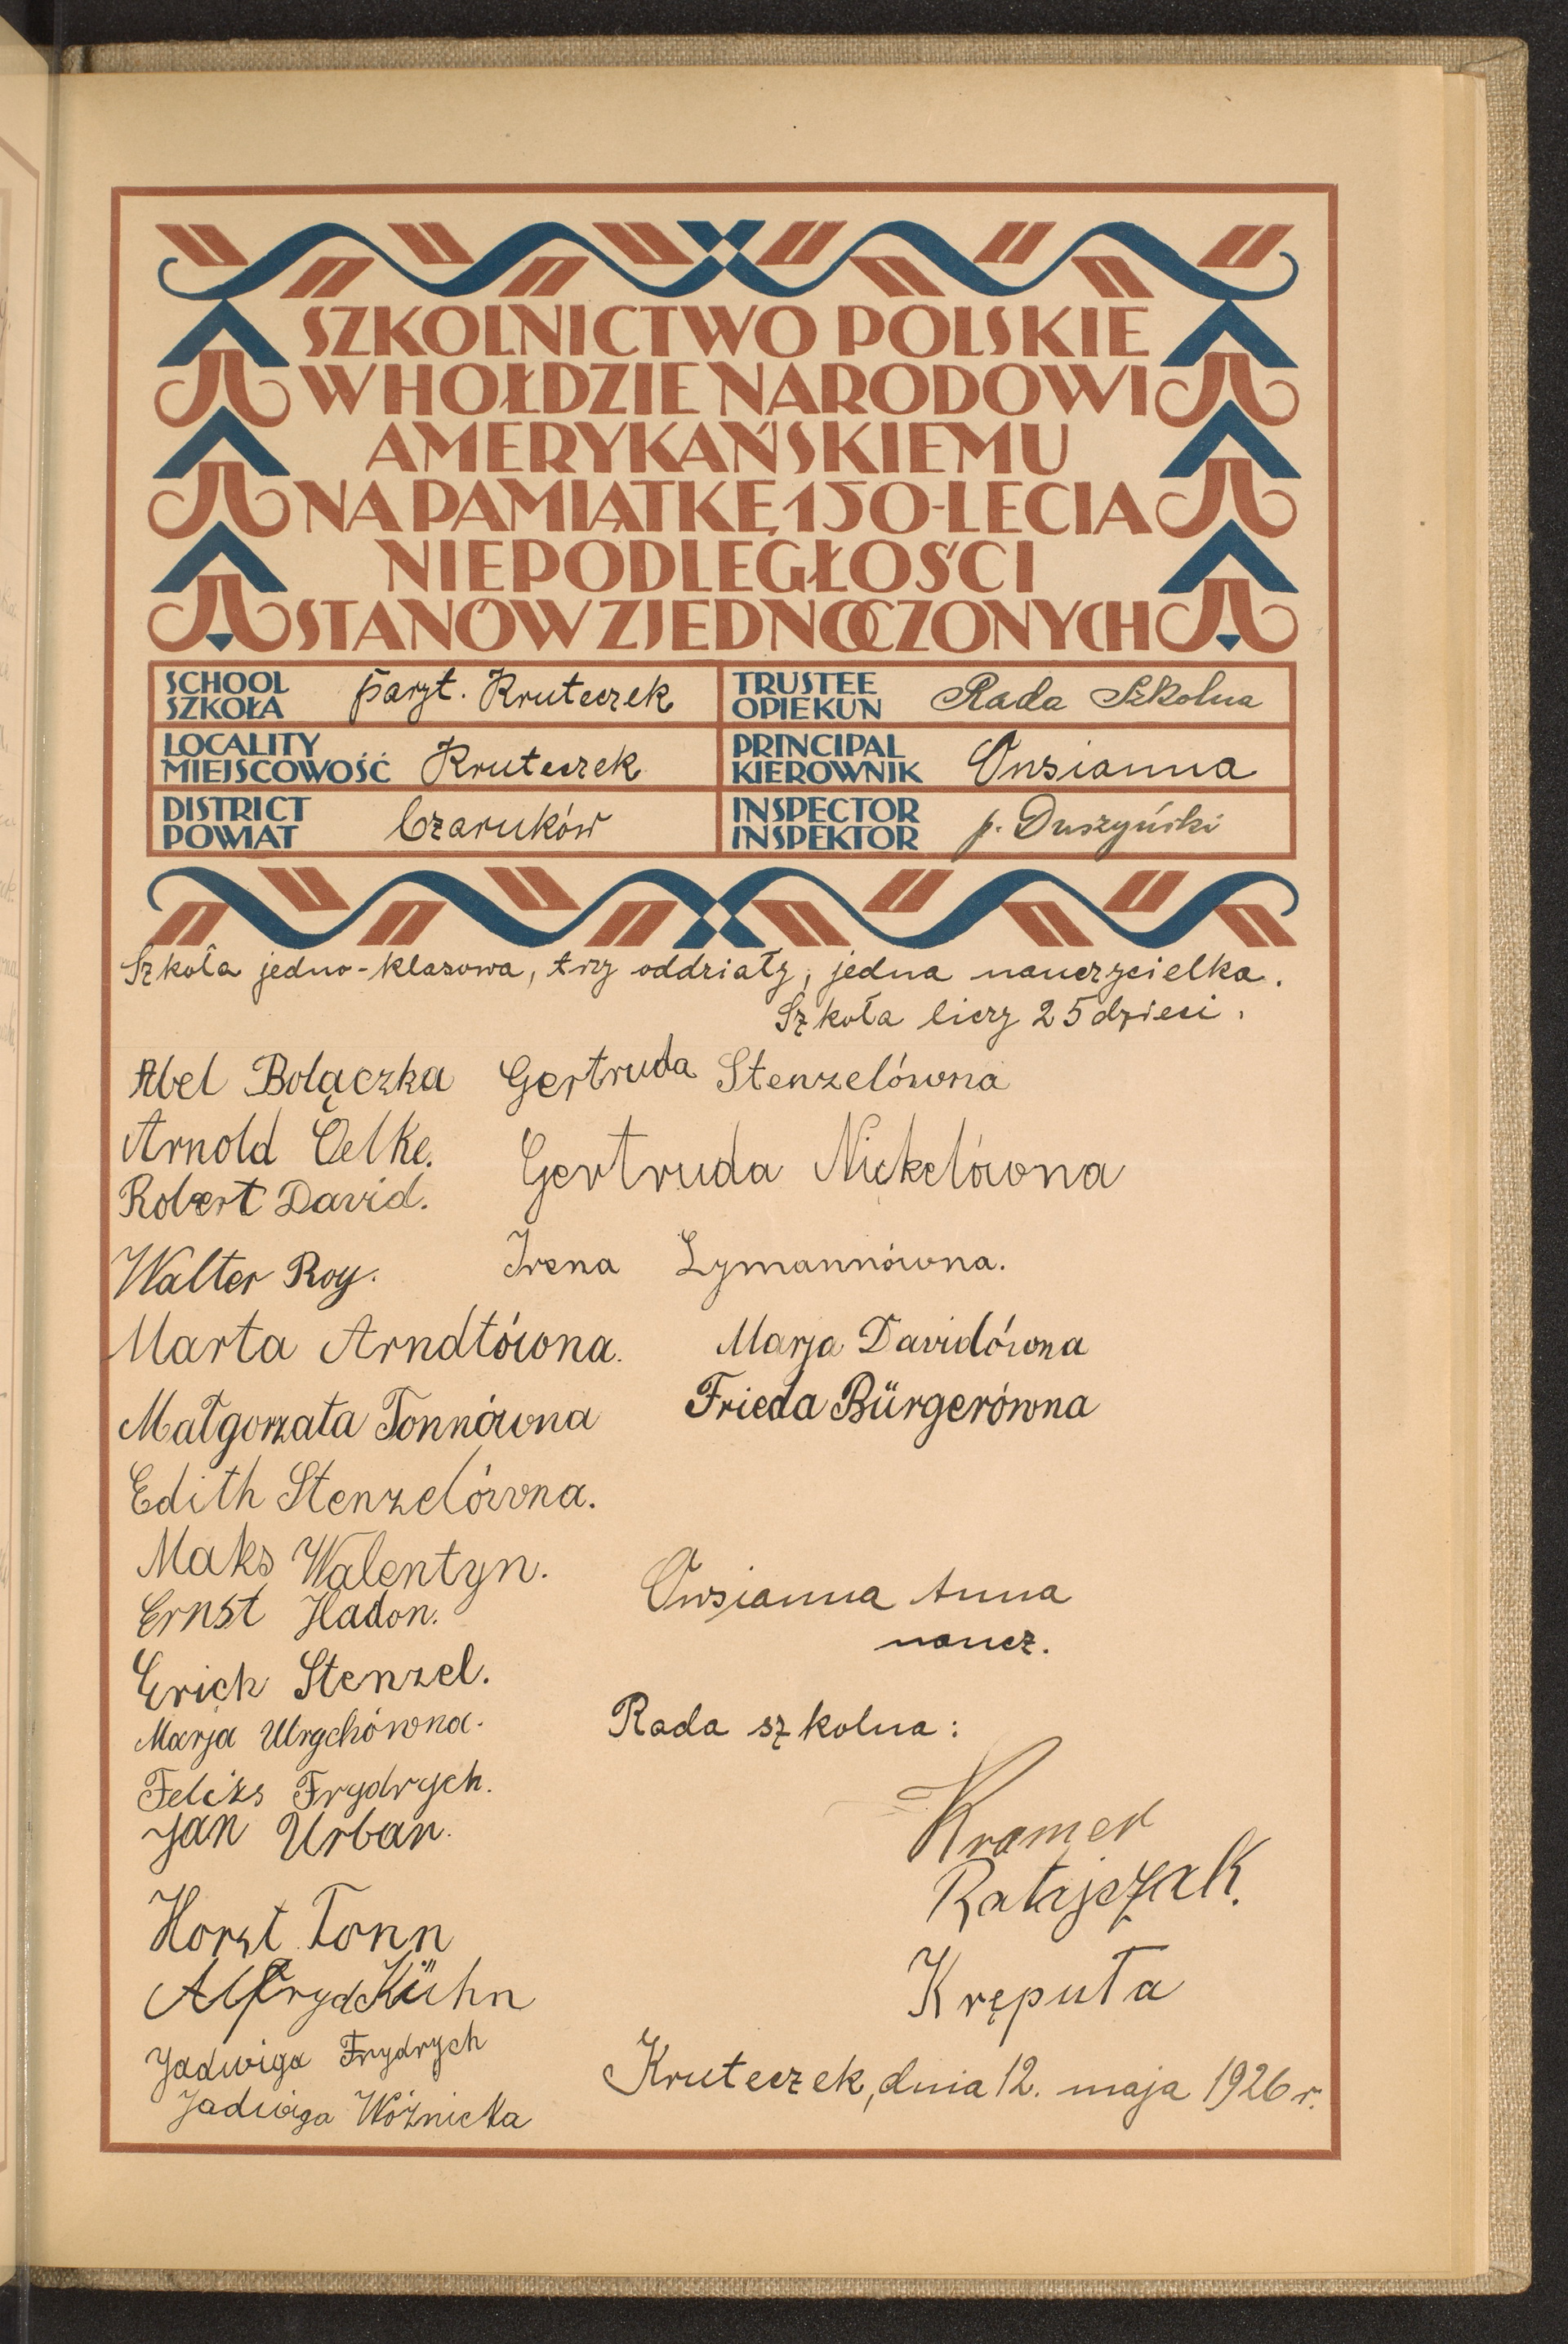 SZKOLNICTWO POLSKIE
W HOŁDZIE NARODOWI
AMERYKAŃSKIEMU
NA PAMIĄTKĘ 150-LECIA
NIEPODLEGŁOŚCI
STANÓW ZJEDNOCZONYCH
SCHOOL
SZKOŁA
paryt. Kruteczek
TRUSTEE
OPIEKUN
Rada Szkolna
LOCALITY
MIEJSCOWOŚĆ
Kruteczek
PRINCIPAL
KIEROWNIK
Owsianna
DISTRICT
POWIAT
Czarnków
INSPECTOR
INSPEKTOR
p. Duszyński
Szkoła jedno-klasowa, trzy oddziały, jedna nauczycielka.
Szkoła liczy 25 dzieci.
Abel Bolączka
Arnold Oelke.
Robert David.
Walter Roy.
Marta Arndtówna.
Małgorzata Tonnówna
Edith Stenzelówna.
Maks Walentyn.
Ernst Hadon.
Erich Stenzel.
Marja Urychówna.
Feliks Frydrych.
Jan Urban.
Horst Tonn
Alfryd Kühn
Jadwiga Frydrych
Jadwiga Wóźnicka
Gertruda Stenzelówna
Gertruda Nickelówna
Irena Lymannówna.
Marja Davidówna
Frieda Bürgerówna
Owsianna Anna
naucz.
Rada szkolna:
Kramer
Ratajczak.
Kręputa
Kruteczek, dnia 12. maja 1926 r.